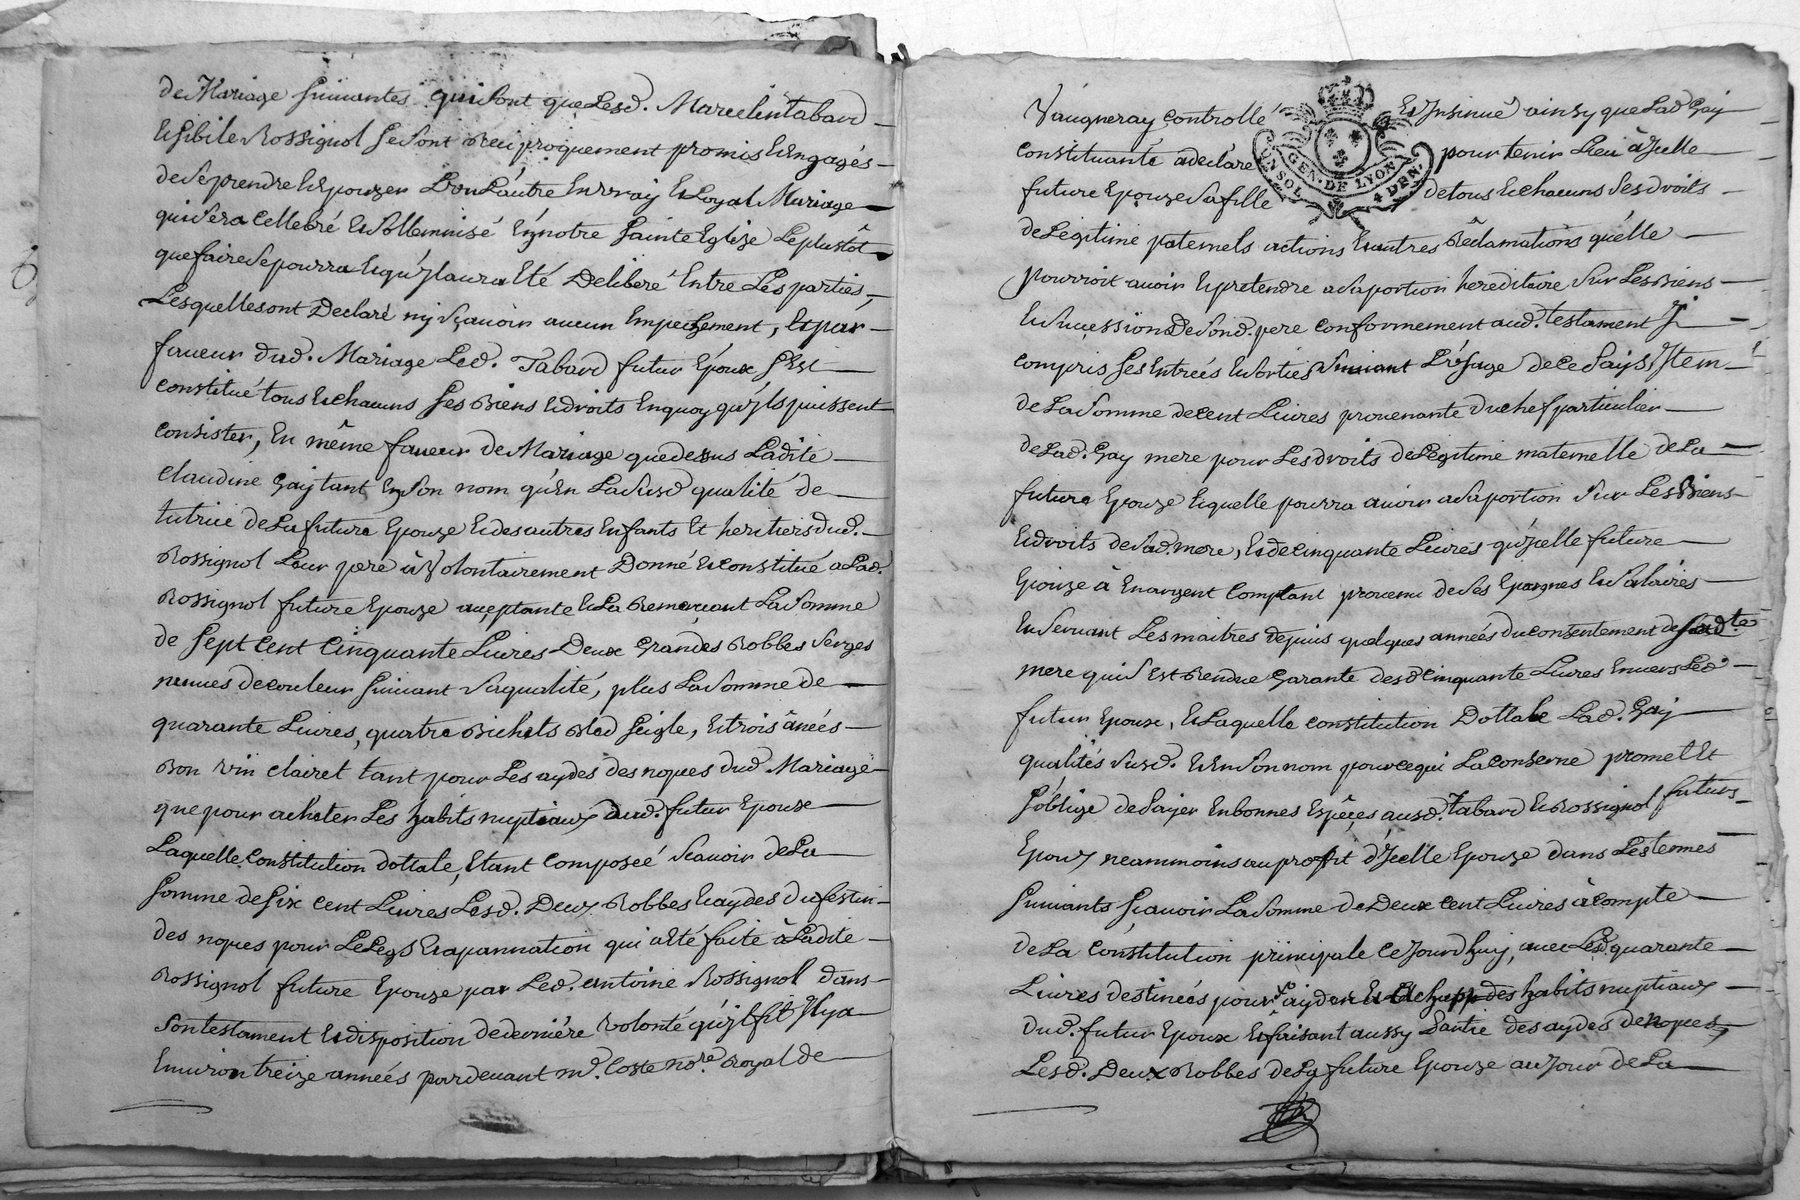 de Mariage suivantes qui sont que Lesd. Marcelin tabard
Et sibile Rossignol se sont Reciproquement promis Et Engagés
de se prendre Et Epouzer L'un L'autre En vray Et Loyal Mariage
qui sera cellebré Et sollemnisé En notre Sainte Eglize Le plustôt
que faire se pourra Et qu'jl aura Eté Deliberé Entre Les parties,
Lesquelles ont Declaré ny sçavoir aucun Empechement, Et par
faveur dud. Mariage Led. Tabard futur Epoux s'Est
constitué tous Et chacuns ses Biens Et droits En quoy qu'jls puissent
consister, En même faveur de Mariage que dessus Ladite
claudine Gay tant En son nom qu'En La susd qualité de
tutrice de La future Epouze Et des autres Enfants Et heritiers dud.
Rossignol Leur pere à Volontairement Donné Et constitué a Lad.
Rossignol future Epouze acceptante Et La Remerciant La somme
de sept cent Cinquante Livres Deux Grandes Robbes Serges
neuves de couleur suivant sa qualité, plus La somme de
quarante Livres, quatre Bichets Bled seigle, Et trois ânées
Bon vin clairet tant pour Les aydes des nopces dud Mariage
que pour acheter Les habits nuptiaux dud. futur Epoux
Laquelle constitution dottale, Etant composeé scavoir de La
somme de six cent Livres Lesd. Deux Robbes Et aydes du festin
des nopces pour Le Legs Et apannation qui a Eté faite à Ladite
Rossignol future Epouze par Led. antoine Rossignol dans
son testament Et disposition de derniére volonté qu'jl fit Jl y a
Environ treize années pardevant Me. Coste nore. Royal de
Vaugneray controllé Et Jnsinué ainsy que Lad Gay
GEN. DE LYON
UN SOL 4 DEN.
constituante a declaré pour tenir Lieu à Jcelle
future Epouze sa fille de tous Et chacuns ses droits
de Legitime paternels actions Et autres Réclamations qu'elle
pourroit avoir Et pretendre a sa portion hereditaire sur Les Biens
Et succession De sond. pere conformement aud. testament J
compris ses Entreés Et sorties suivant L'usage de ce Pays, Jtem
de La somme de cent Livres provenante du chef particulier
de Lad. Gay mere pour Les droits de Legitime maternelle de La
future Epouze Laquelle pourra avoir a sa portion sur Les Biens
Et droits de sad. mere, Et de cinquante Livres qu'Jcelle future
Epouze à En argent Comptant provenu de ses Epargnes Et salaires
En servant Les maitres depuis quelques années du consentement de sadte
mere qui s'Est Rendue Garante desd Cinquante Livres Envers Led
futur Epoux, Et Laquelle constitution Dottale Lad. Gay
qualités susd. Et En son nom pour ce qui La conserne promet Et
s'oblige de Payer En bonnes Espéçes ausd. tabard Et Rossignol futurs
Epoux neammoins au profit d'Jcelle Epouze dans Les termes
suivants scavoir La somme de Deux cent Livres à compte
de La Constitution principale Ce Jourd'huy, avec Lesd. quarante
Livres destineés pour ayder des habits nuptiaux
dud. futur Epoux Et faisant aussy Partie des aydes de nopces,
Lesd. Deux Robbes de La future Epouze au Jour de La